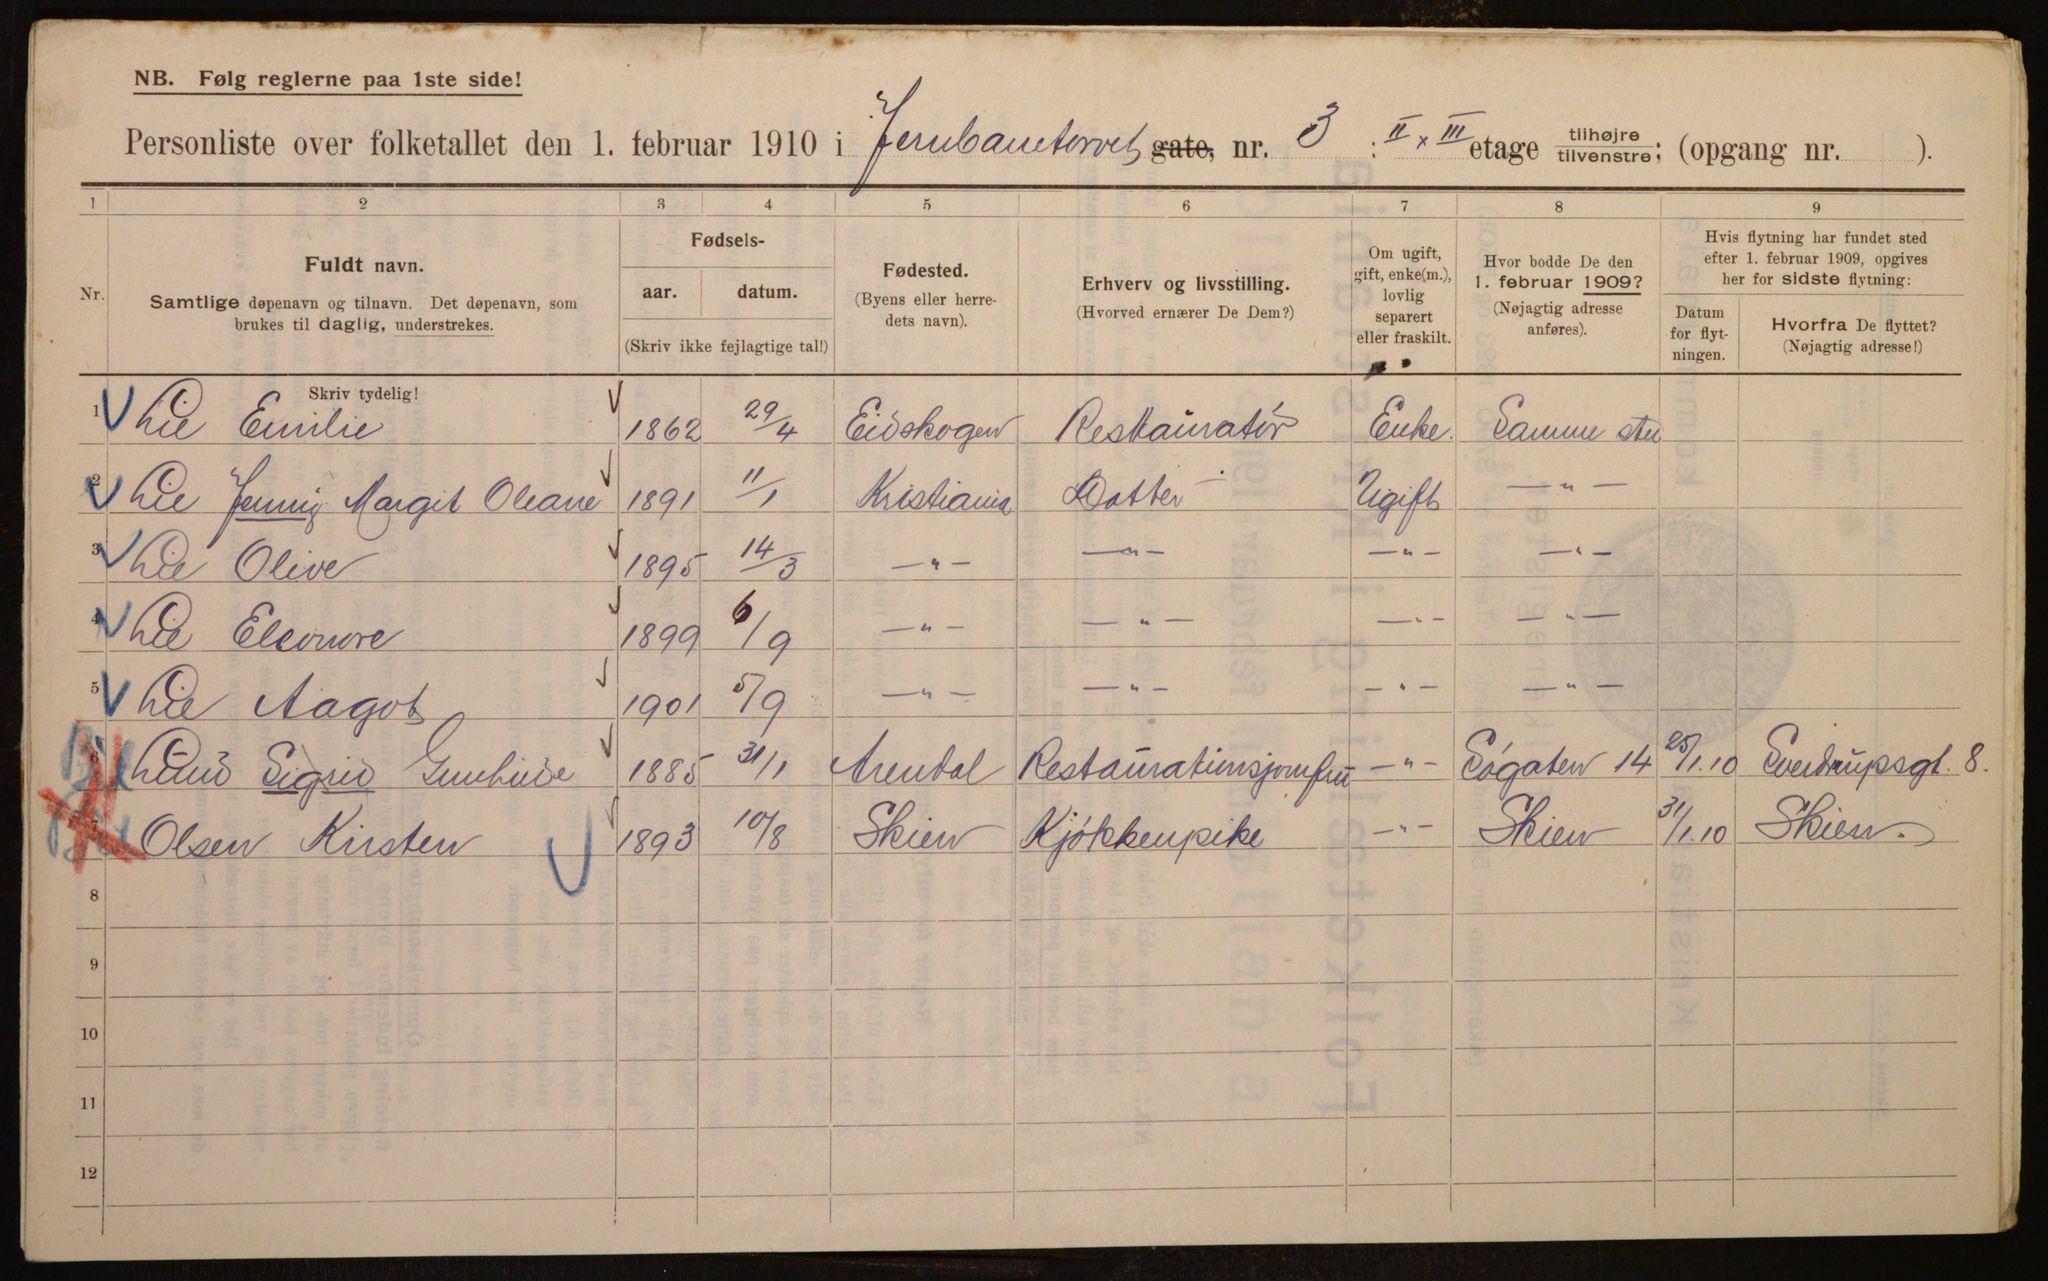 NB. Følg reglerne paa 1ste side!
Personliste over folketallet den 1. februar 1910 i Jernbanetorvet gate, nr. 3 : II x III etage tilhøjre tilvenstre; (opgang nr. ).
1 2 3 4 5 6 7 8 9
Nr.
Fuldt navn.
Samtlige døpenavn og tilnavn. Det døpenavn, som
brukes til daglig, understrekes.
Skriv tydelig!
Fødsels-
aar. datum.
(Skriv ikke fejlagtige tal!)
Fødested.
(Byens eller herre-
dets navn).
Erhverv og livsstilling.
(Hvorved ernærer De Dem?)
Om ugift,
gift, enke(m.),
lovlig
separert
eller fraskilt.
Hvor bodde De den
1. februar 1909?
(Nøjagtig adresse
anføres).
Hvis flytning har fundet sted
efter 1. februar 1909, opgives
her for sidste flytning:
Datum
for flyt-
ningen.
Hvorfra De flyttet?
(Nøjagtig adresse!)
1 Lie Emilie 1862 29/4 Eidskogen Restauratør Enke. Samme sted
2 Lie Jenny Margit Oleane 1891 11/1 Kristiania Datter Ugift — " —
3 Lie Olive 1895 14/3 — " — — " — — " — — " —
4 Lie Eleonore 1899 6/9 — " — — " — — " — — " —
5 Lie Aagot 1901 5/9 — " — — " — — " — — " —
6 Lund Sigrid Gunhilde 1885 31/1 Arendal Restaurationsjomfru — " — Søgaten 14 25/1.10 Sverdrupsgt. 8.
7 Olsen Kirsten 1893 10/8 Skien Kjøkkenpike — " — Skien 31/1.10 Skien.
8
9
10
11
12